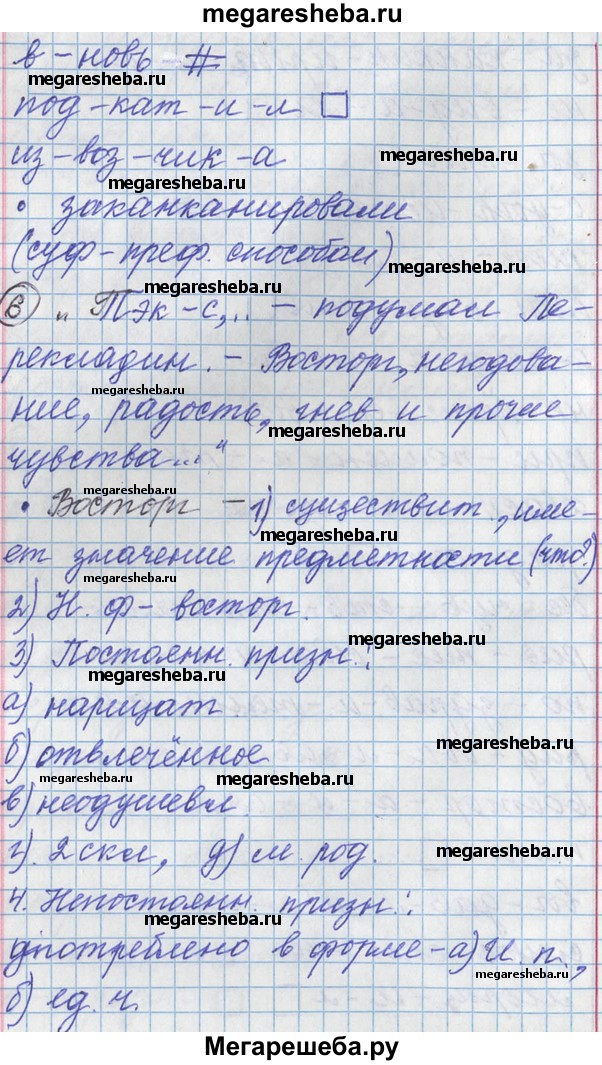 megaresheba.ru
megaresheba.ru
в-новь #
megaresheba.ru
под-кат-и-л
megaresheba.ru
из-воз-чик-а
megaresheba.ru
• заканканировали
megaresheba.ru
(суф-преф. способом)
megaresheba.ru
6 „Тэк-с,.. – подумал Пе-
megaresheba.ru
рекладин. – Восторг, негодова-
megaresheba.ru
ние, радость, гнев и прочие
megaresheba.ru
чувства..."
megaresheba.ru
• Восторг – 1) существит., име-
megaresheba.ru
ет значение предметности (что?)
megaresheba.ru
2) Н. ф – восторг.
megaresheba.ru
3) Постоянн. призн.:
megaresheba.ru
а) нарицат.
megaresheba.ru
б) отвлечённое
megaresheba.ru
megaresheba.ru
в) неодушевл.
г). 2 скл, д) м. род.
megaresheba.ru
4. Непостоянн. призн.:
megaresheba.ru
употреблено в форме – а) И. п.,
megaresheba.ru
б) ед. ч.
megaresheba.ru
Мегарешеба.ру